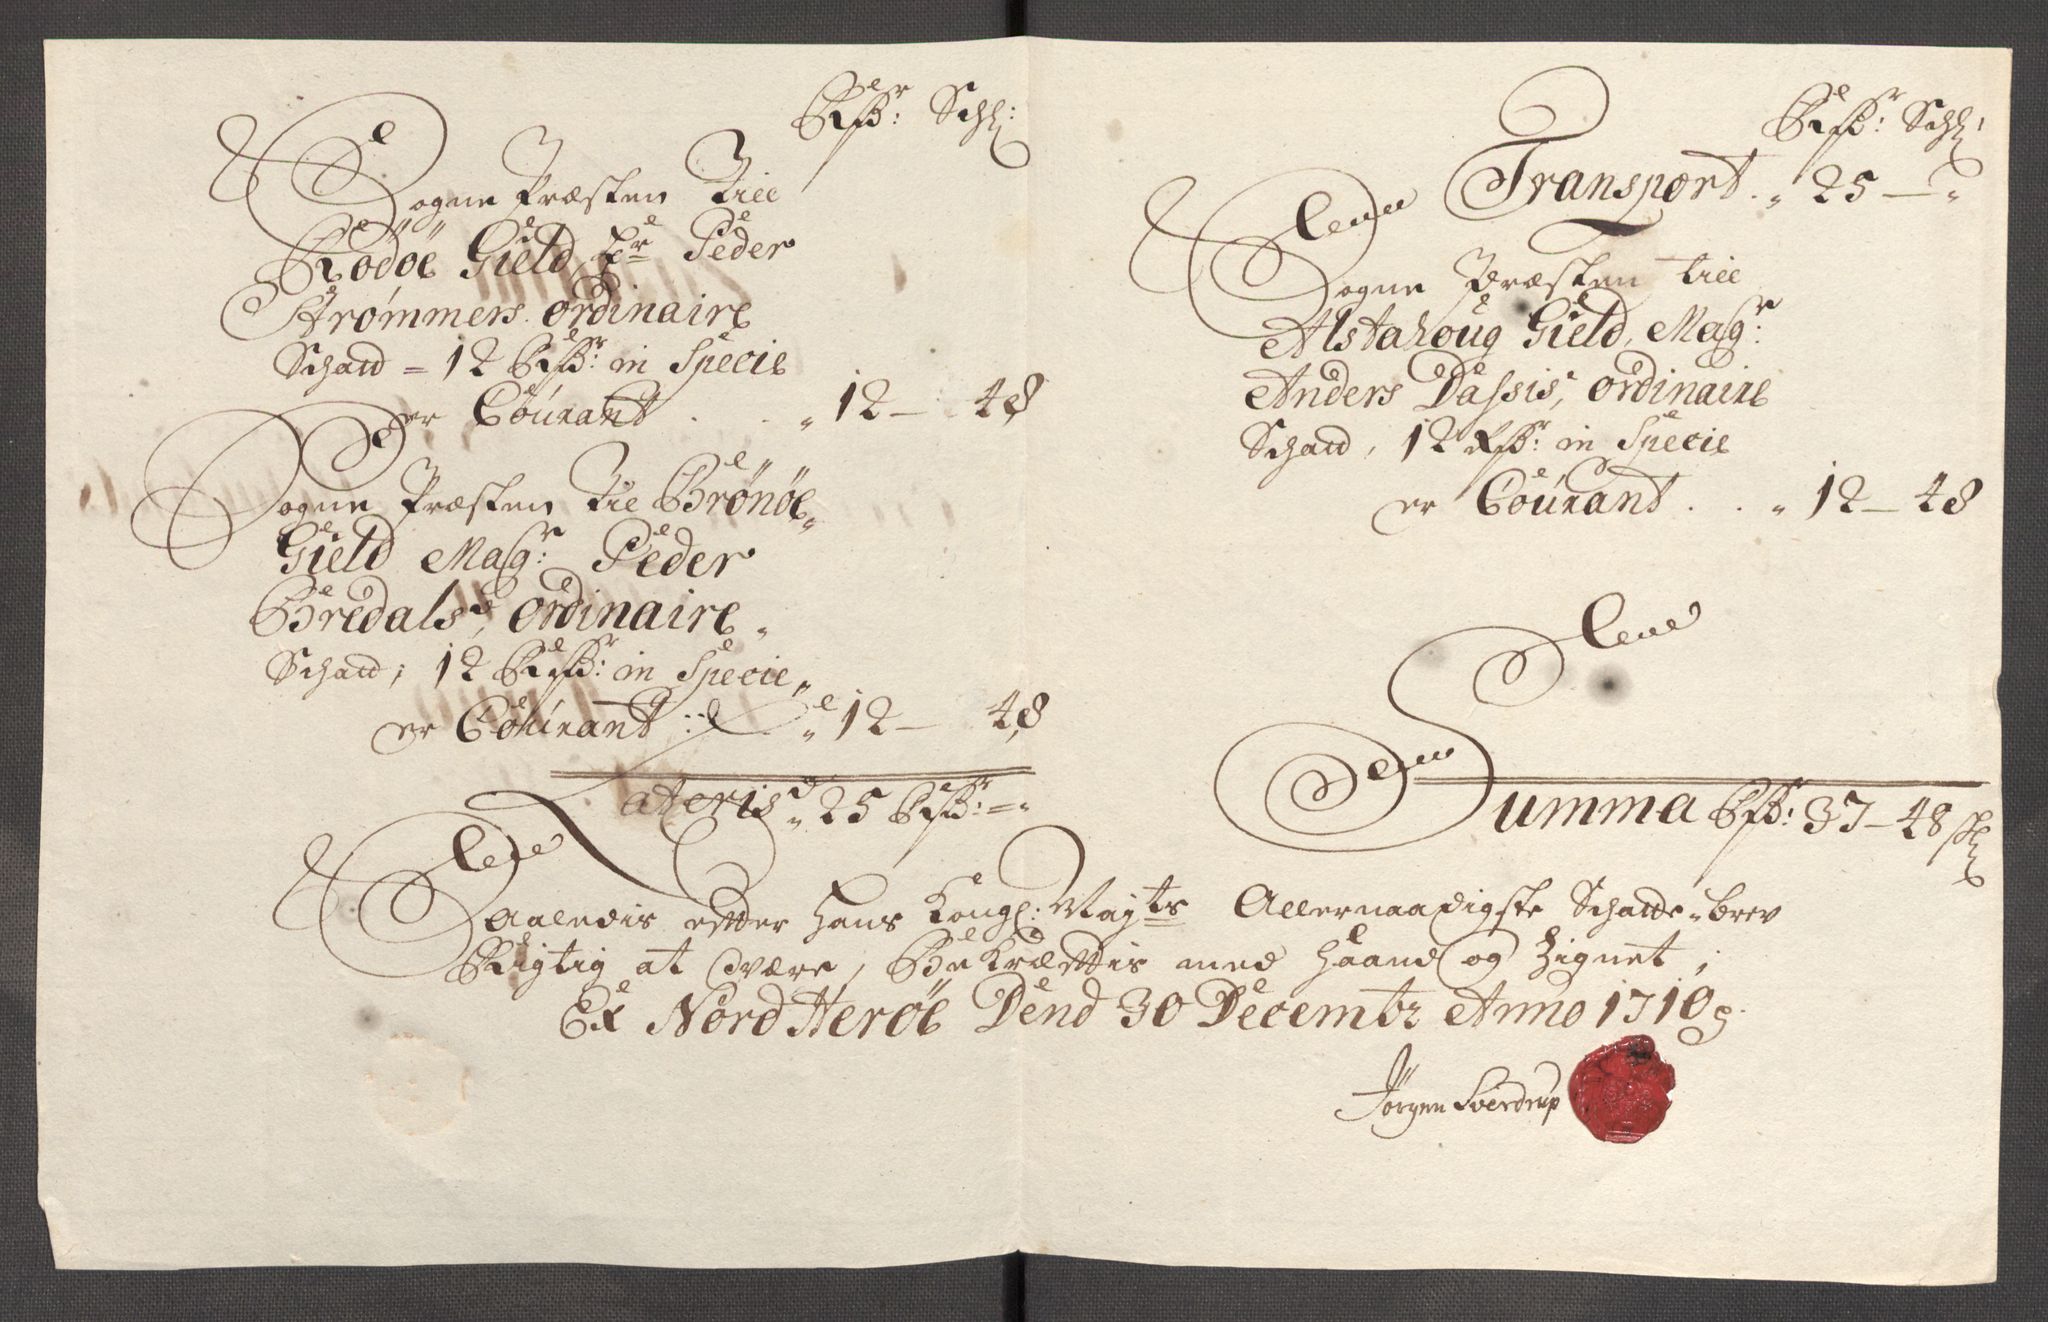 Rdr: Sch:
Sogne Præsten till
Rödöe Gield hr Peder
Strømmers ordinaire
Schatt = 12 Rdr: in Specie
er Courant . . „ 12 — 48
Sogne Præsten till Brönöe
Gield Magr: Peder
Bredals, ordinaire
Schatt; 12 Rdr: in Specie
er Courant „ 12 — 48
Lateris „ 25 Rdr: = „
Rdr: Sch:
Transport . „ 25 — „
Sogne Præsten till
Alstahoug Gield, Magr:
Anders Dassis, ordinaire
Schatt, 12 Rdr: in Specie
er Courant . . „ 12 — 48
Summa Rdr: 37 — 48 sh
Saaledis efter Hans Kongl: Mayts Allernaadigste Schatte-brev
Rigtig at være, Bekræfftis med Haand og Zignet;
Ex Nord Heröe Dend 30 Decembr Anno 1710
Jörgen Sverdrup